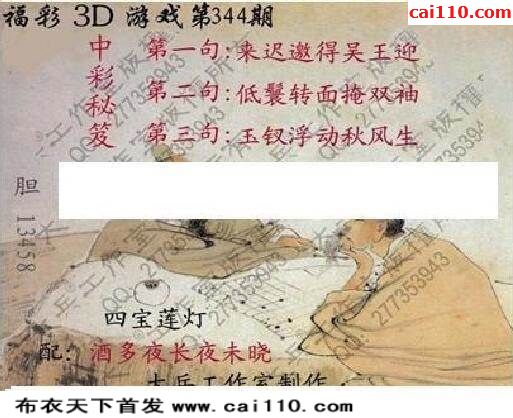 福彩 3D 游戏第344期
cai110.com
中彩秘笈
第一句:来迟邀得吴王迎
第二句:低鬟转面掩双袖
第三句:玉钗浮动秋风生
胆 13458
四宝莲灯
配: 酒多夜长夜未晓
士兵工作室制作
士兵工作室版权所有
QQ:277353943
布衣天下首发 www.cai110.com